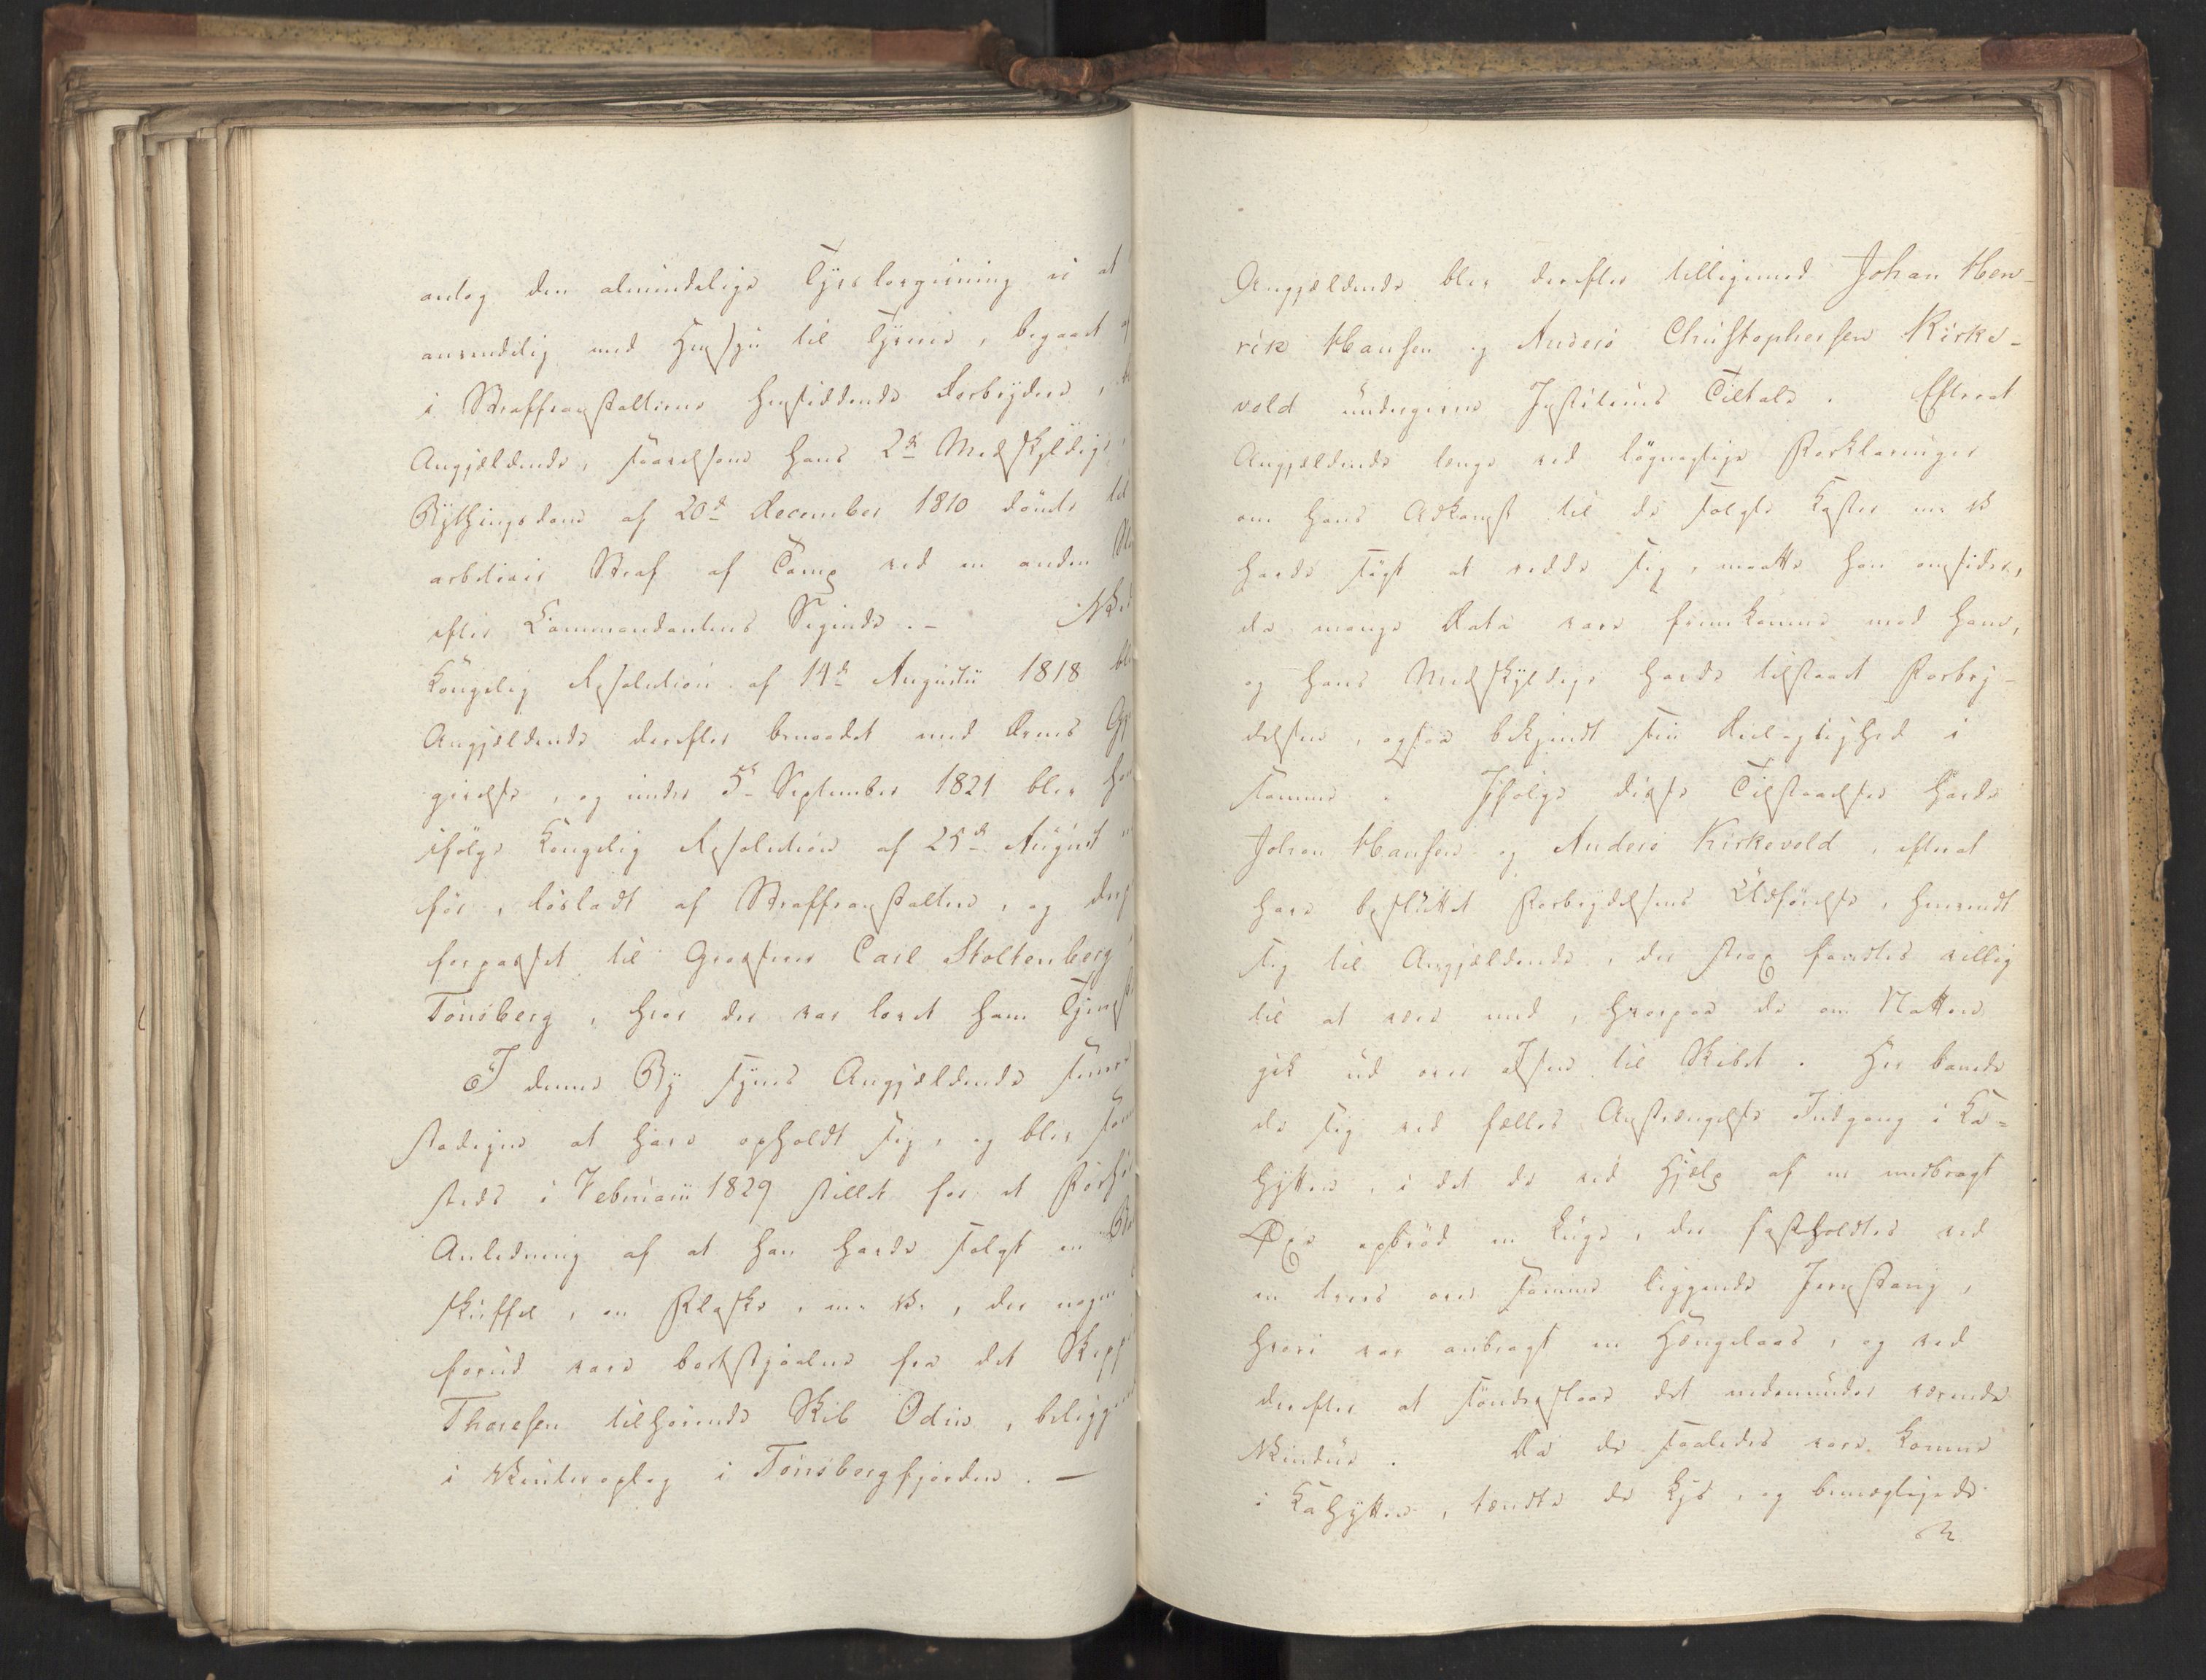 antog den almindelige Tyvslovgivning ei at
anvendelig med Hensyn til Tyverie, begaaet af
i Straffeanstalterne hensiddende Forbrydere,
Angjældende, saavelsom hans 2de Medskyldige,
Bythingsdom af 20de December 1810 dömte til
arbitrair Straf af Tamp ved en anden
efter Commandantens Sigende. -
Kongelig Resolution af 14de Augustii 1818 blev
Angjældende derefter benaadet med Aarets
givelse, og under 5te September 1821 blev han
ifölge Kongelig Resolution af 25de August
för, lösladt af Straffeanstalten, og
forpasset til Grosserer Carl Stoltenberg
Tönsberg, hvor der var lovet ham Tjeneste
I denne By synes Angjældende senere
stadigen at have opholdt sig, og blev
steds i Februarii 1829 stillet for et Forhör
Anledning af at han havde solgt en
skuffel, en Flaske, m. v., der nogen
forud vare bortstjaalne fra det Skipper
Thoresen tilhörende Skib Odin, beliggende
i Vinteroplag i Tönsbergfjorden. -
Angjældende blev derefter tilligemed Johan Hen-
rik Hansen og Anders Christophersen Kirke-
vold undergiven Justitiens Tiltale. Efterat
Angjældende længe ved lögnagtige Forklaringer
om hans Adkomst til de solgte Koster m. v.
havde sögt at redde sig, maatte han omsider,
da mange Data vare fremkomne mod ham,
og hans Medskyldige havde tilstaaet Forbry-
delsen, ogsaa bekjendt sin Deelagtighed i
samme. Ifölge disse Tilstaaelser havde
Johan Hansen og Anders Kirkevold, efterat
have besluttet Forbrydelsens Udförelse, henvendt
sig til Angjældende, der strax fandtes villig
til at være med, hvorpaa de om Natten
gik ud over Isen til Skibet. Her banede
de sig ved fælles Anstrængelse Indgang i Ka-
hytten, i det de ved Hjælp af en medbragt
Öxe opbröd en Luge, der fastholdtes ved
en tvers over samme liggende Jernstang,
hvori var anbragt en Hængelaas, og ved
derefter at sönderslaae det nedenunder værende
Vindue. Da de saaledes vare komne
i Kahytten, tændte de Lys, og bemægtigede